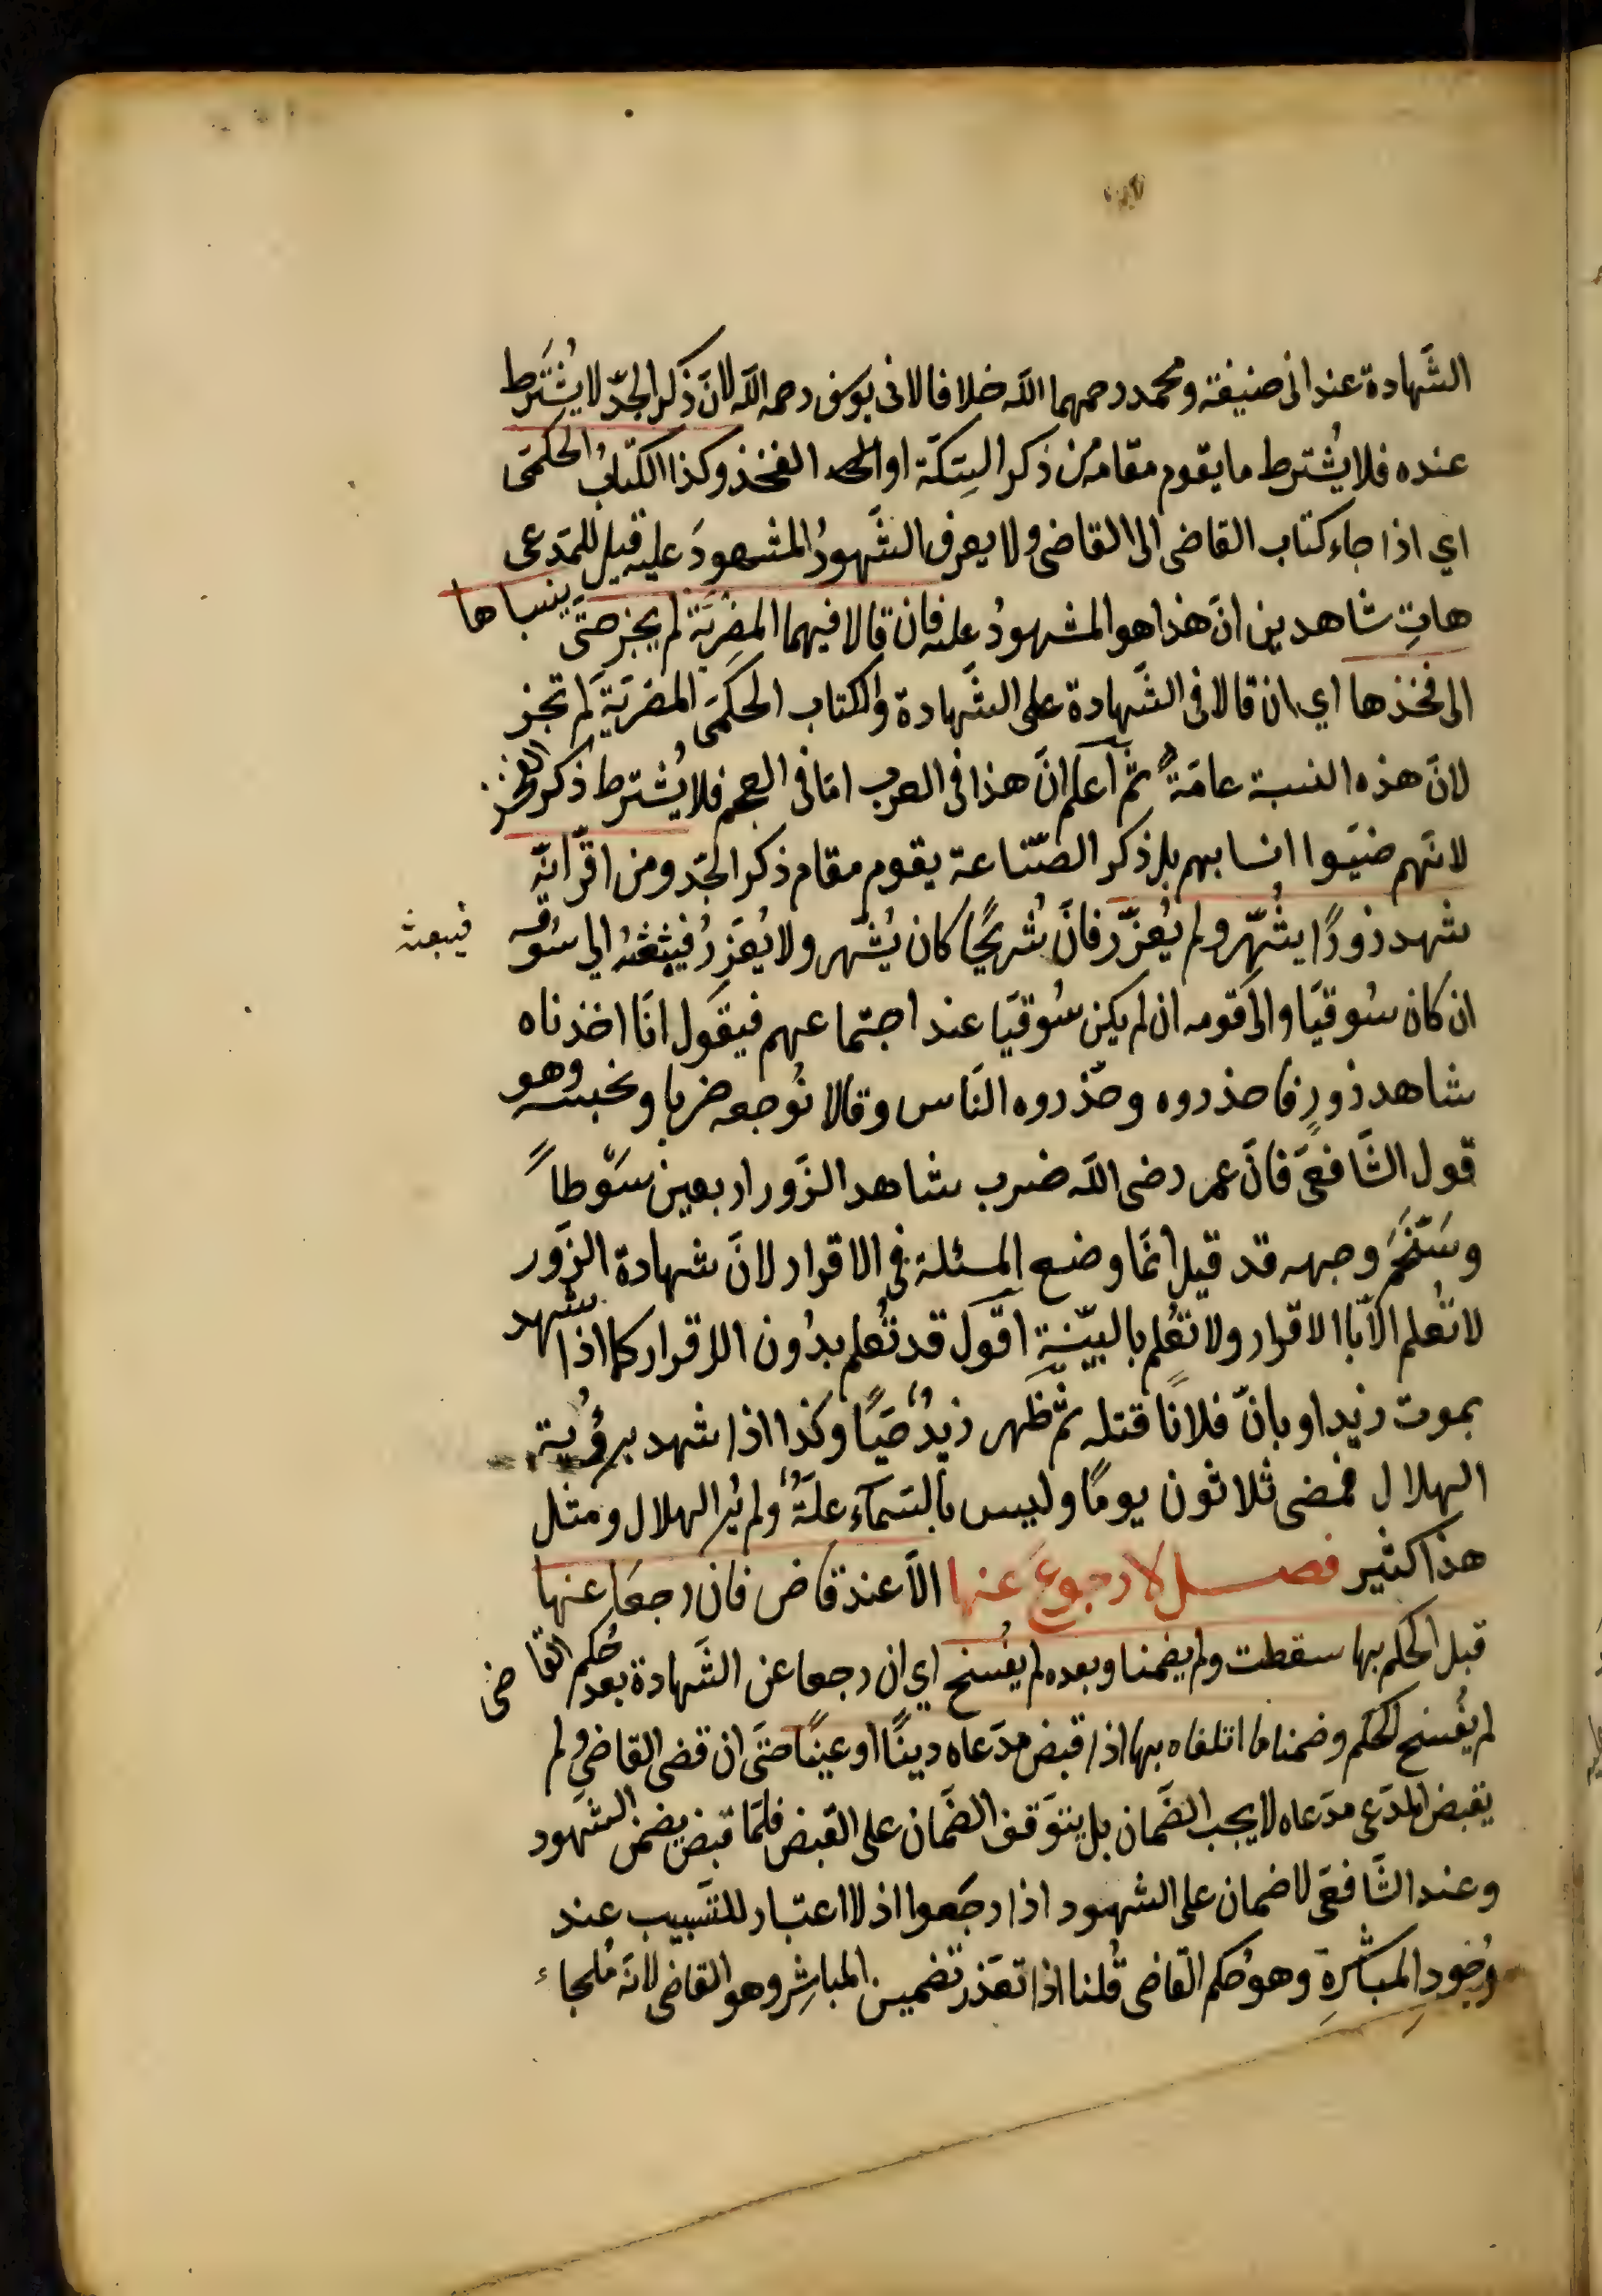 الشَّهادة عند ابى حنيفة ومحمد رحمهما اللّه خلافا لابى يوسف رحمه اللّه لانّ ذكر الجدّ لا يُشْتَرط
عنده فلا يُشترط ما يقوم مقامه من ذكر السِّكّة او الفخذ وكذا الكتابُ الحكمىّ
اي اذا جاء كتاب القاضى الى القاضى ولا يعرف الشَّهودُ المشهودَ عليه قيل للمدّعى
هاتِ شاهدين انّ هذا هو المشهودُ عليه فان قالا فيهما المضريّة لم يجز حتّى ينسباها
الى فخذها اي ان قالا فى الشَّهادة على الشَّهادة والكتاب الحكمىّ المضريّة لم تجز
لانّ هذه النسبة عامّةٌ ثمّ اعلم انّ هذا فى العرب امّا فى العجم فلا يُشترط ذكر الفخذ
لانّهم ضيّوا انسابهم بل ذكر الصّناعة يقوم مقام ذكر الجدّ ومن اقرّ انّه
شهد زورًا يُشهّر ولم يُعزّر فانّ شُريحًا كان يُشهّر ولا يُعزّرُ فيبعثهُ الي سُوقه
فيبعثه
ان كان سُوقيّا والى قومه ان لم يكن سُوقيّا عند اجتماعهم فيقول انّا اخذناه
شاهد زورٍ فاحذروه وحذّروه النّاس وقالا نُوجعه ضربا ونحبسه وهو
قول الشّافعىّ فانّ عمر رضى اللّه ضرب شاهد الزّور اربعين سَوطاً
وسَخّم وجهه قد قيل انّما وضع المسئلة فى الاقرار لانّ شهادة الزّور
لا تُعلم الاّ باالاقرار ولا تُعلم بالبيّنة اقول قد تُعلم بدُون الاقرار كما اذا شهد
بموت زيد او بانّ فلانًا قتله ثمّ ظهر زيدٌ حيًّا وكذا اذا شهد برؤية
الهلال فمضى ثلاثون يومًا وليس بالسّمآء علّةٌ ولم يُر الهلال ومثل
هذا كثير فصل لا رجوعَ عنها الاّ عند قاض فان رجعا عنها
قبل الحكم بها سقطت ولم يضمنا وبعده لم يفُسخ اي ان رجعا عن الشّهادة بعد حُكم القاضى
لم يفُسخ الحكم وضمنا ما اتلفاه بها اذا قبض مدّعاه دينًا او عينًا حتّى ان قضى القاضى ولم
يقبض المدّعى مدّعاه لا يجب الضّمان بل يتوقّف الضّمان على القبض فلمّا قبض يضمن الشّهود
وعند الشّافعىّ لا ضمان على الشهود اذا رجَعوا اذ لا اعتبار للتّسبيب عند
وُجودِ المباشرةِ وهو حُكم القاضى قُلنا اذا تعذّر تضمين المباشِر وهو القاضى لانّه مُلجاء